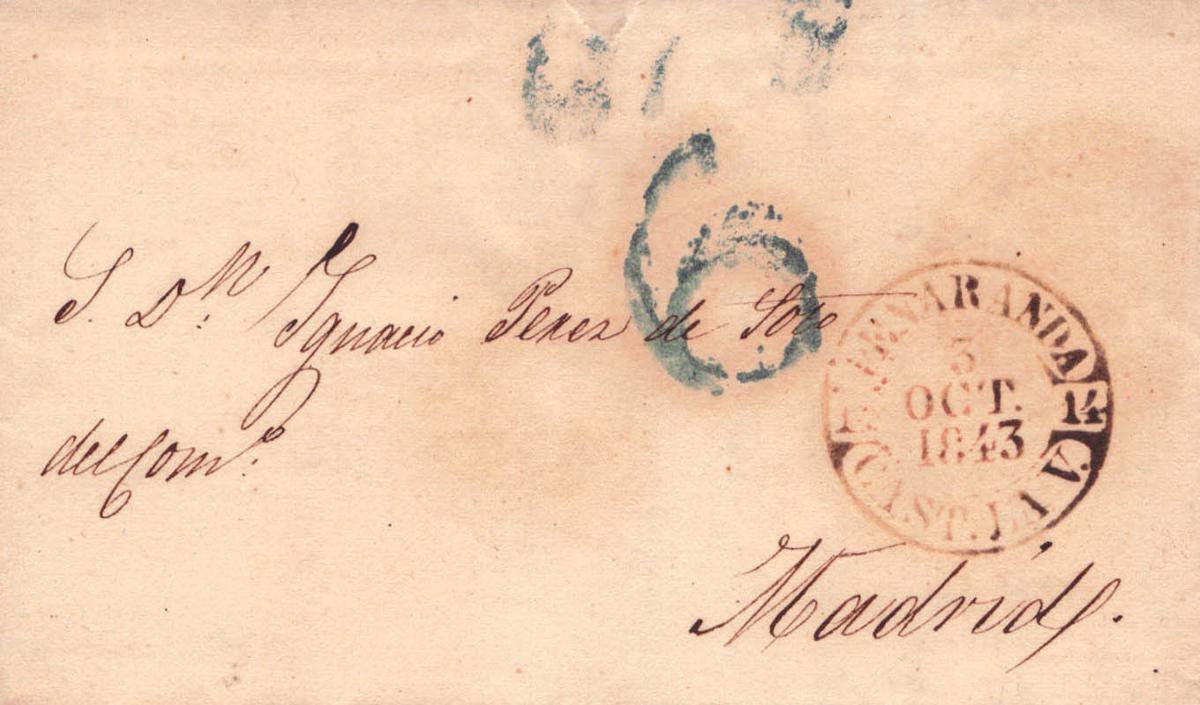 6
S. Dn. Ignacio Perez de Soto
del Como.
PEÑARANDA
3
OCT.
1843
14
CAST. LA V.
Madrid.